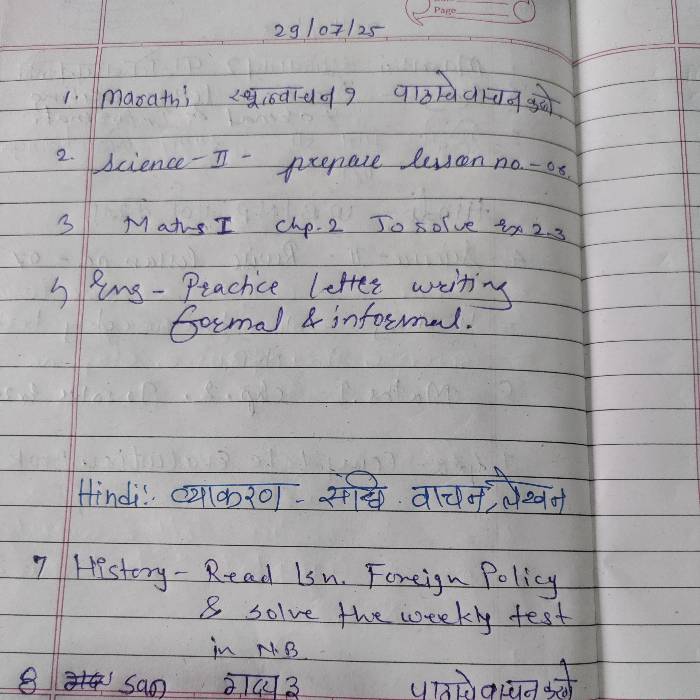 Page
29/07/25
1. Marathi स्थूलवाचन १ पाठाचे वाचन करणे.
2. Science-II - prepare lesson no.-08.
3 Maths I chp.2 To solve Ex 2.3
5 Eng - Practice letter writing
formal & informal.
Hindi:. व्याकरण - संधि . वाचन, लेखन
7 History - Read lsn. Foreign Policy
& solve the weekly test
in N.B.
8 San गद्य 3 पाठाचे वाचन करणे